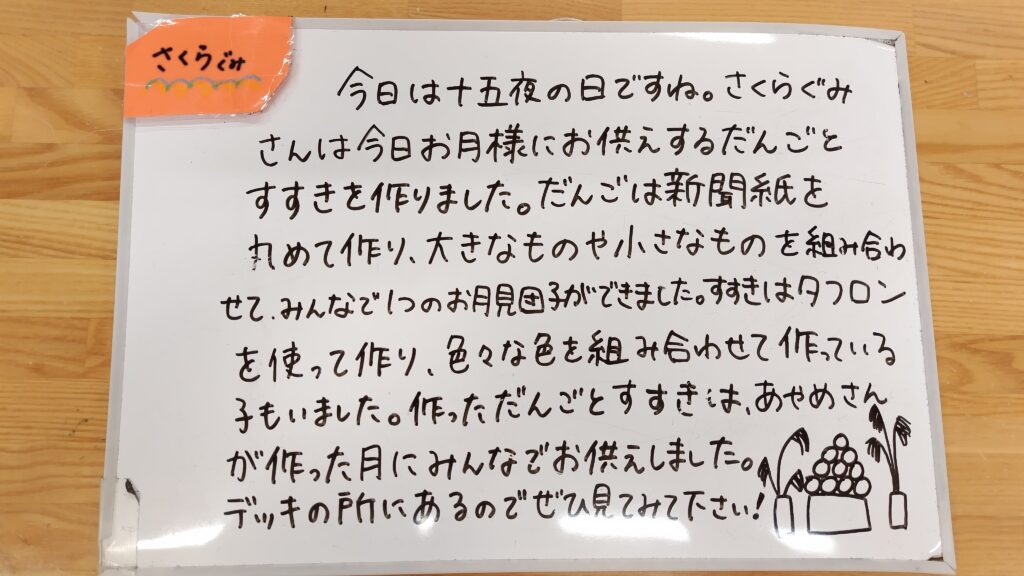 さくらぐみ
今日は十五夜の日ですね。さくらぐみ
さんは今日お月様にお供えするだんごと
すすきを作りました。だんごは新聞紙を
丸めて作り、大きなものや小さなものを組み合わ
せて、みんなで1つのお月見団子ができました。すすきはタフロン
を使って作り、色々な色を組み合わせて作っている
子もいました。作っただんごとすすきは、あやめさん
が作った月にみんなでお供えしました。
デッキの所にあるのでぜひ見てみて下さい!